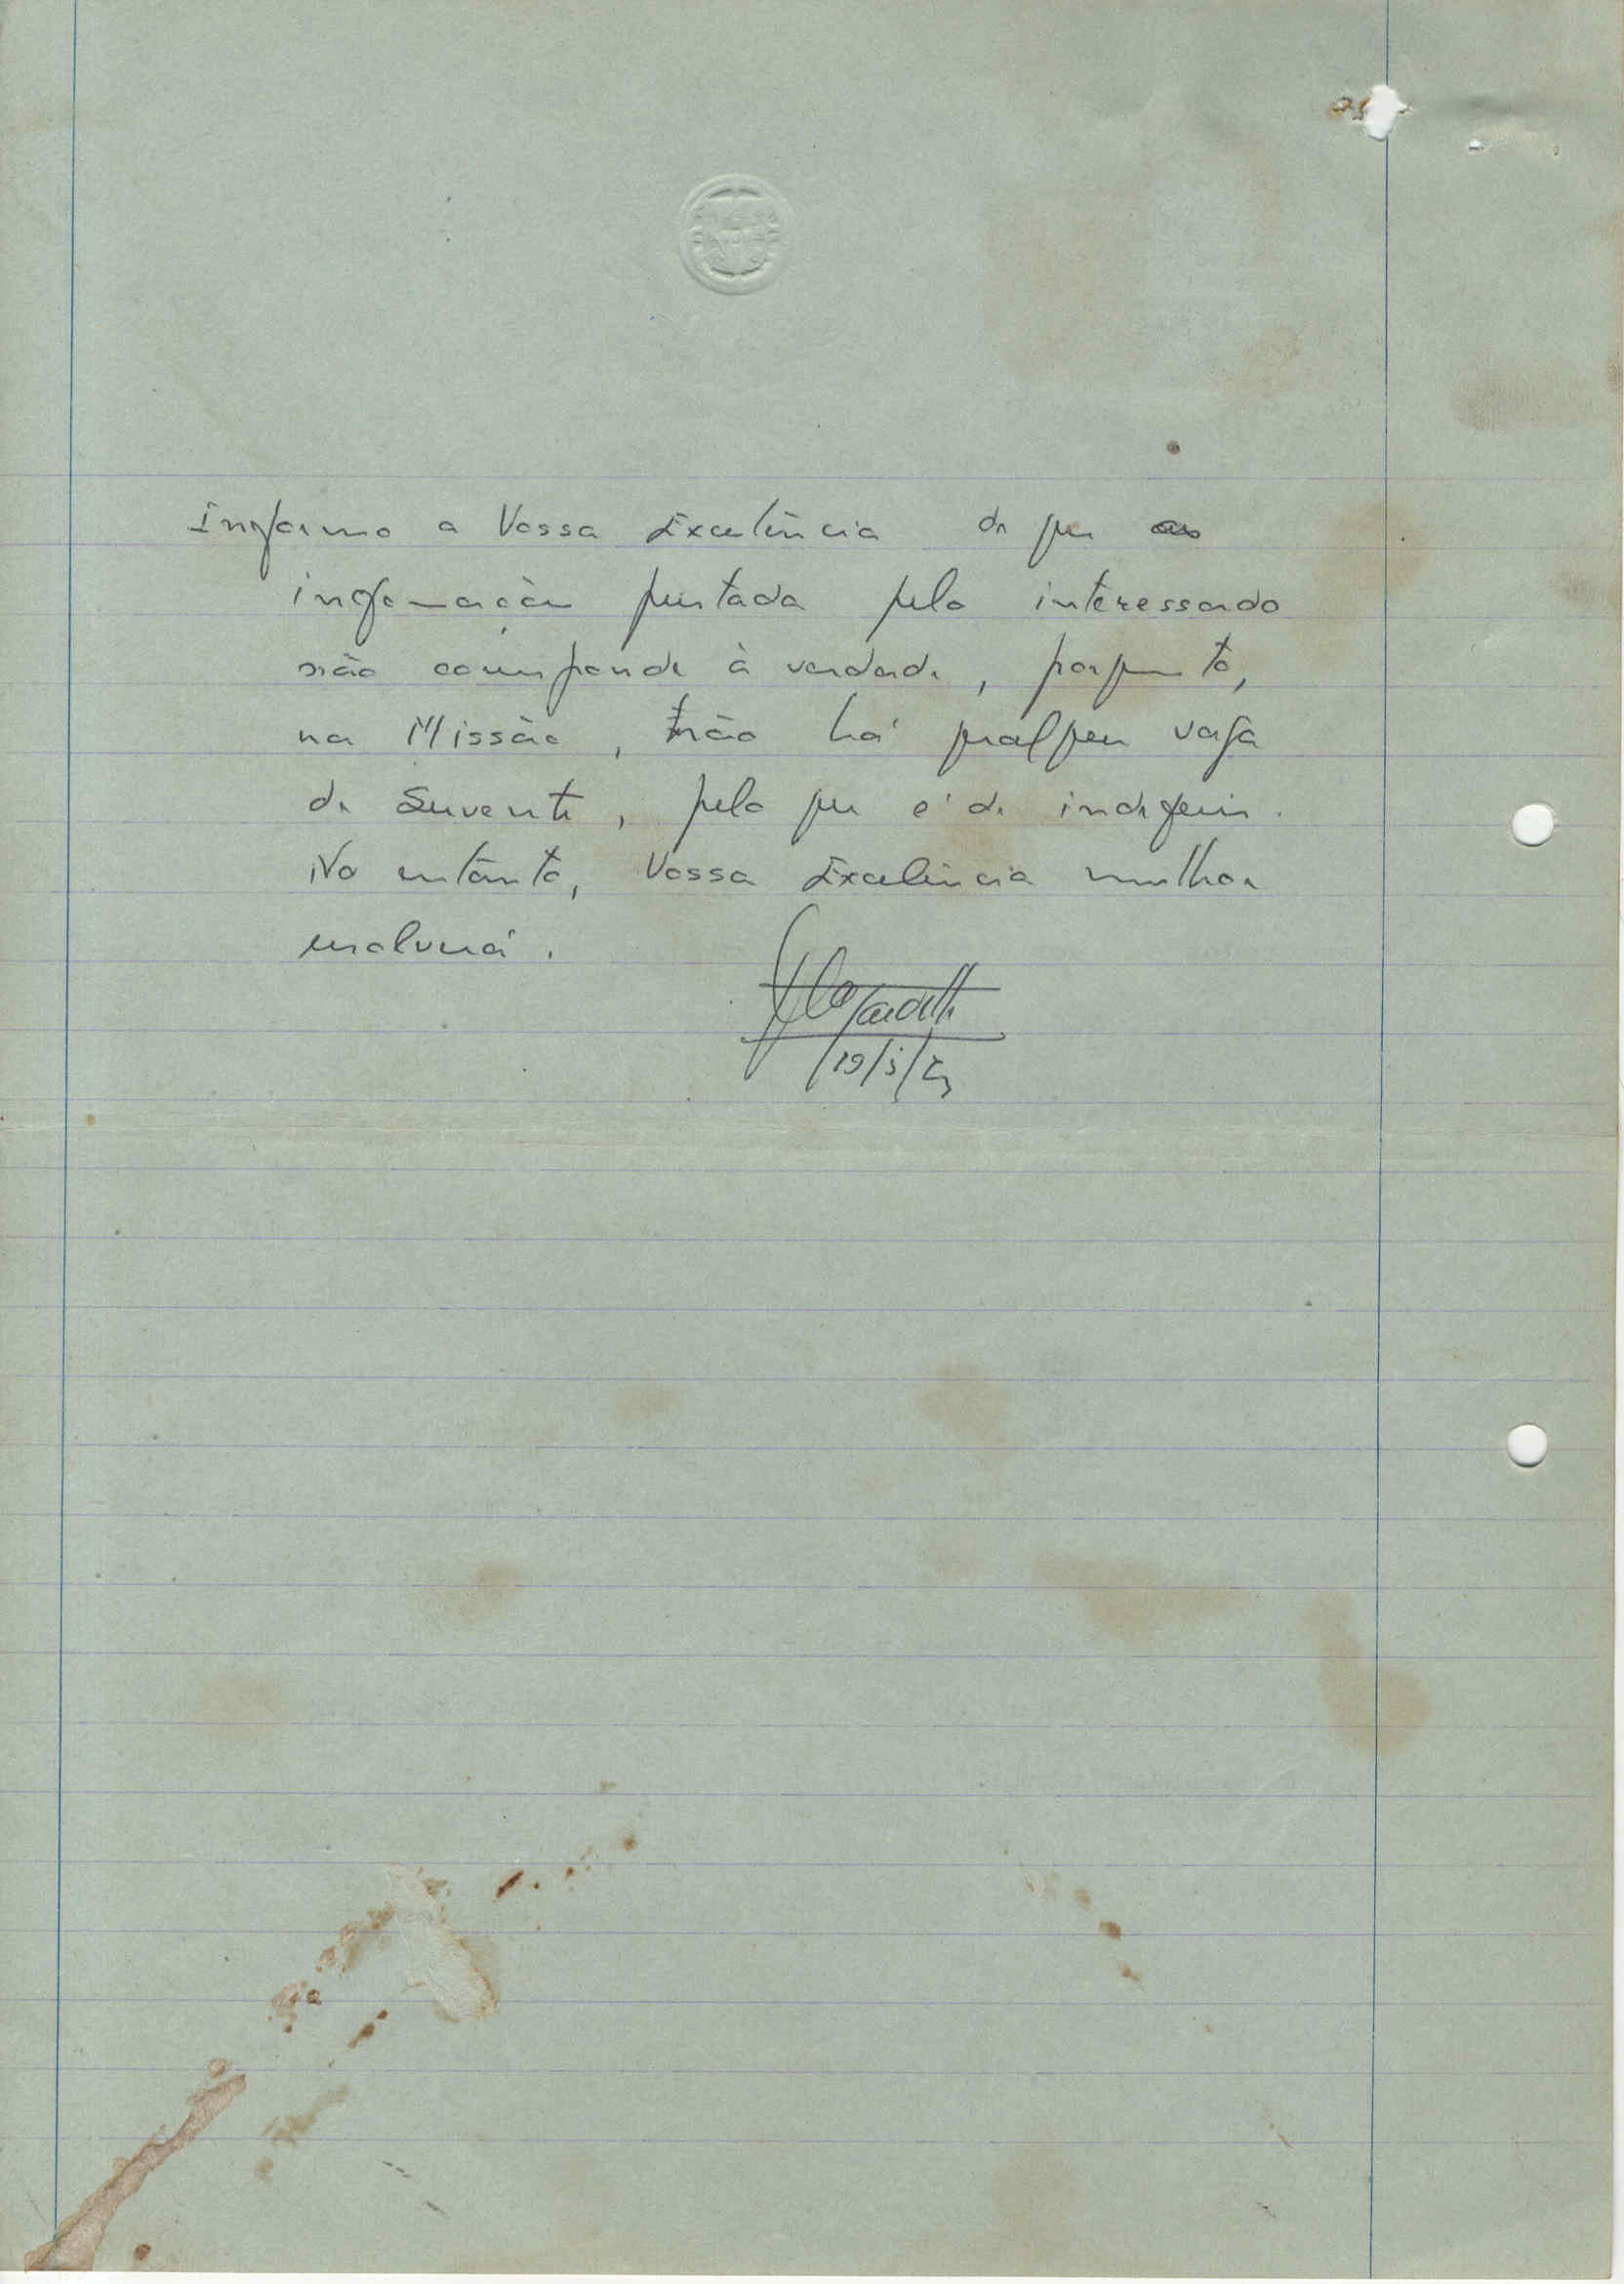 Informo a Vossa Excelência de que as
informação prestada pelo interessado
não corresponde à verdade, porquanto,
na Missão, não há qualquer vaga
de Servente, pelo que é de indeferir.
No entanto, Vossa Excelência melhor
resolverá.